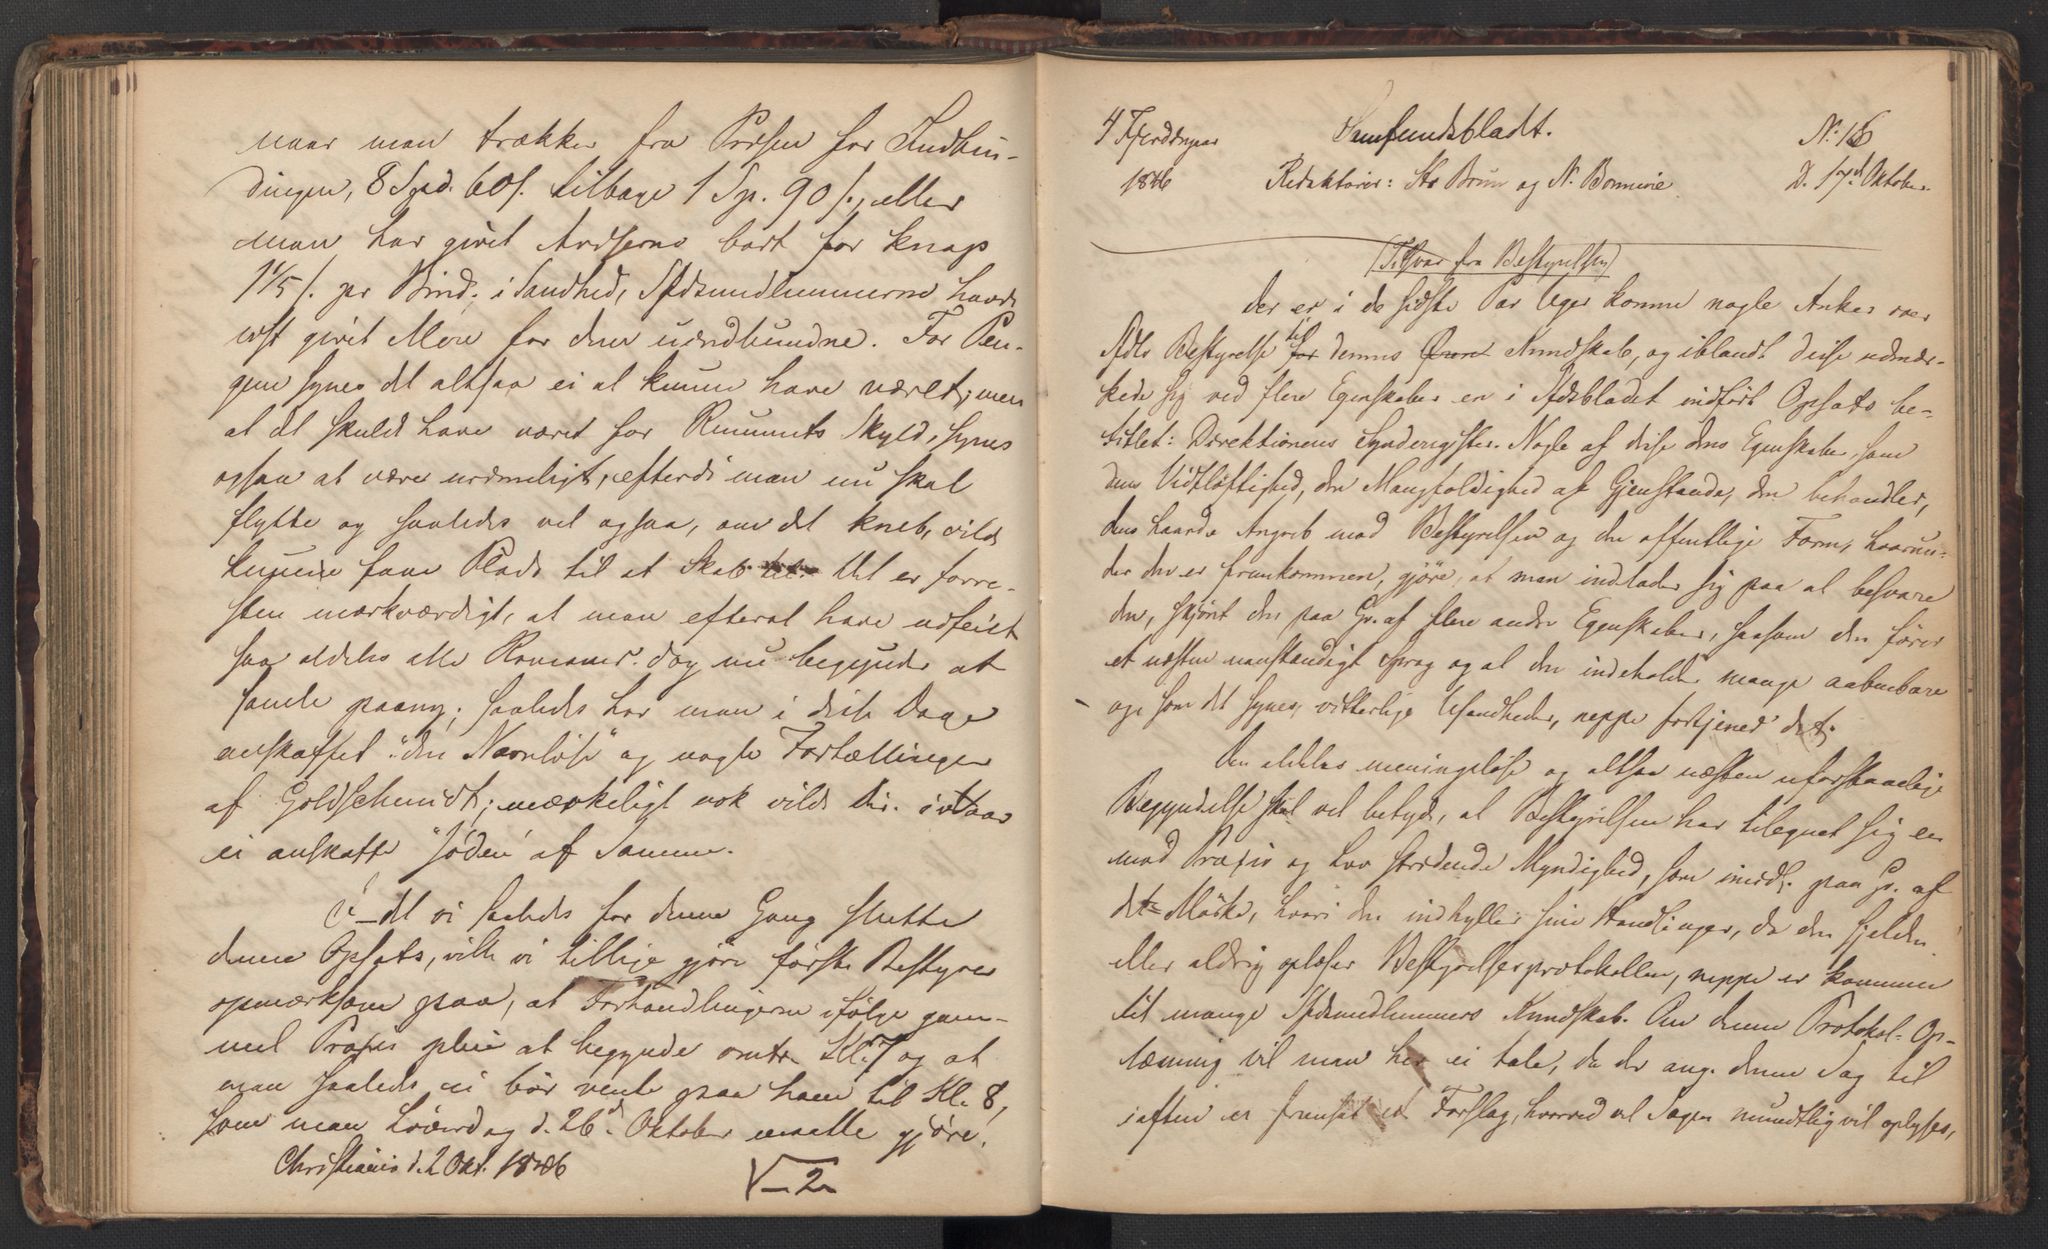 naar man trækker fra Prisen for Indbin-
dingen, 8 Spd. 60 s. tilbage 1 Sp. 90 s., eller
man har givet Andserne bort for knap
1 1/5 s. pr Bind. i Sandhed, Sfdsmedlemmerne havde
vist givet Mere for dem uindbundne. For Pen-
gene synes det altsaa ei at kunne have været; men
at det skulde have været for Rummets Skyld, synes
ogsaa at være urimeligt, efterdi man nu skal
flytte og saaledes vel ogsaa, om det kneb, vilde
kunne faae Plads til et Skab til. Det er forre-
sten mærkværdigt, at man efterat have udseist
saa aldeles alle Romaner dog nu begynder at
samle paany; saaledes har man i disse Dage
anskaffet "den Navnløse" og nogle Fortællinger
af Goldschmidt; mærkeligt nok vilde Dir. ivaar
ei anskaffe "Jøden" af Samme.
Idet vi saaledes for denne Gang slutte
denne Opsats, ville vi tillige gjøre første Bestyrer
opmærksom paa, at Forhandlingerne ifølge gam-
mel Praxis pleie at begynde omtr. Kl. 7 og at
man saaledes ei bør vente paa ham til Kl. 8,
som man Løverdag d. 26d. Oktober maatte gjøre!
Christiania d. 2 Okt. 1846
V-2
4 Fjerdingaar Samfundsbladt. No. 16
1846 Redaktører: Str Brun og N. Bonnevie D. 17d Oktober
(Tilsvar fra Bestyrelsen)
Der er i de sidste Par Uger komne nogle Anker over
Sfdts Bestyrelse til for dennes Øren Kundskab, og iblandt disse udmær-
kede sig ved flere Egenskaber en i Sfdsbladet indført Opsats be-
titlet: Direktionens Synderegister. Nogle af disse dens Egenskaber, som
dens Vidtløftighed, den Mangfoldighed af Gjenstande, den behandler,
dens haarde Angreb mod Bestyrelsen og den offentlige Form, hvorun-
der den er fremkommen, gjøre, at man indlader sig paa at besvare
den, skjønt den paa Gr. af flere andre Egenskaber, saasom den fører
et næsten uanstændigt Sprog og at den indeholder mange aabenbare
og, som det synes, vitterlige Usandheder, neppe fortjener det.
Den aldeles meningsløse og altsaa næsten uforstaaelige
Begyndelse skal vel betyde, at Bestyrelsen har tilegnet sig en
mod Praxis og Lov stridende Myndighed, som imidl. paa Gr. af
det Mørke, hvori den indhyller sine Handlinger, da den sjelden
eller aldrig oplæser Bestyrelsesprotokollen, neppe er kommen
til mange Sfdsmedlemmers Kundskab. Om denne Protokol-Op-
læsning vil man her ei tale, da der ang. denne Sag til
iaften er fremsat et Forslag, hvorved vel Sagen mundtlig vil oplyses,